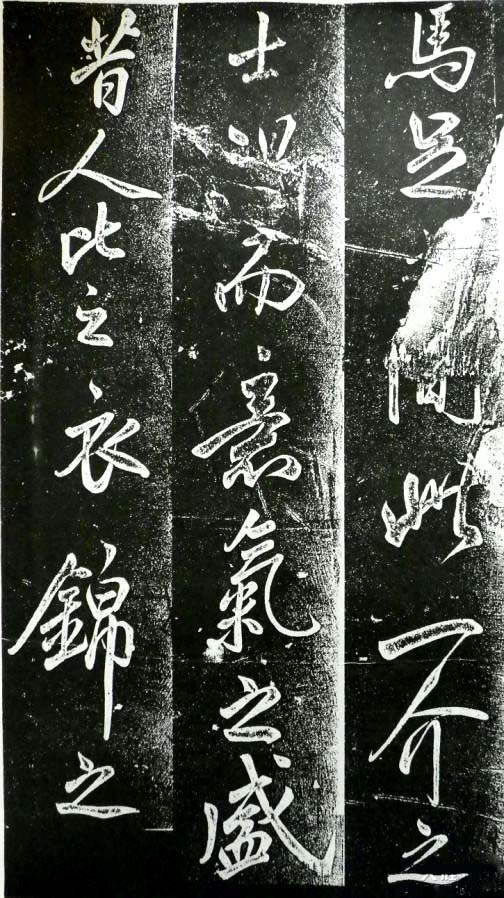 馬足間此一介之
士而意氣之盛
昔人比之衣錦之